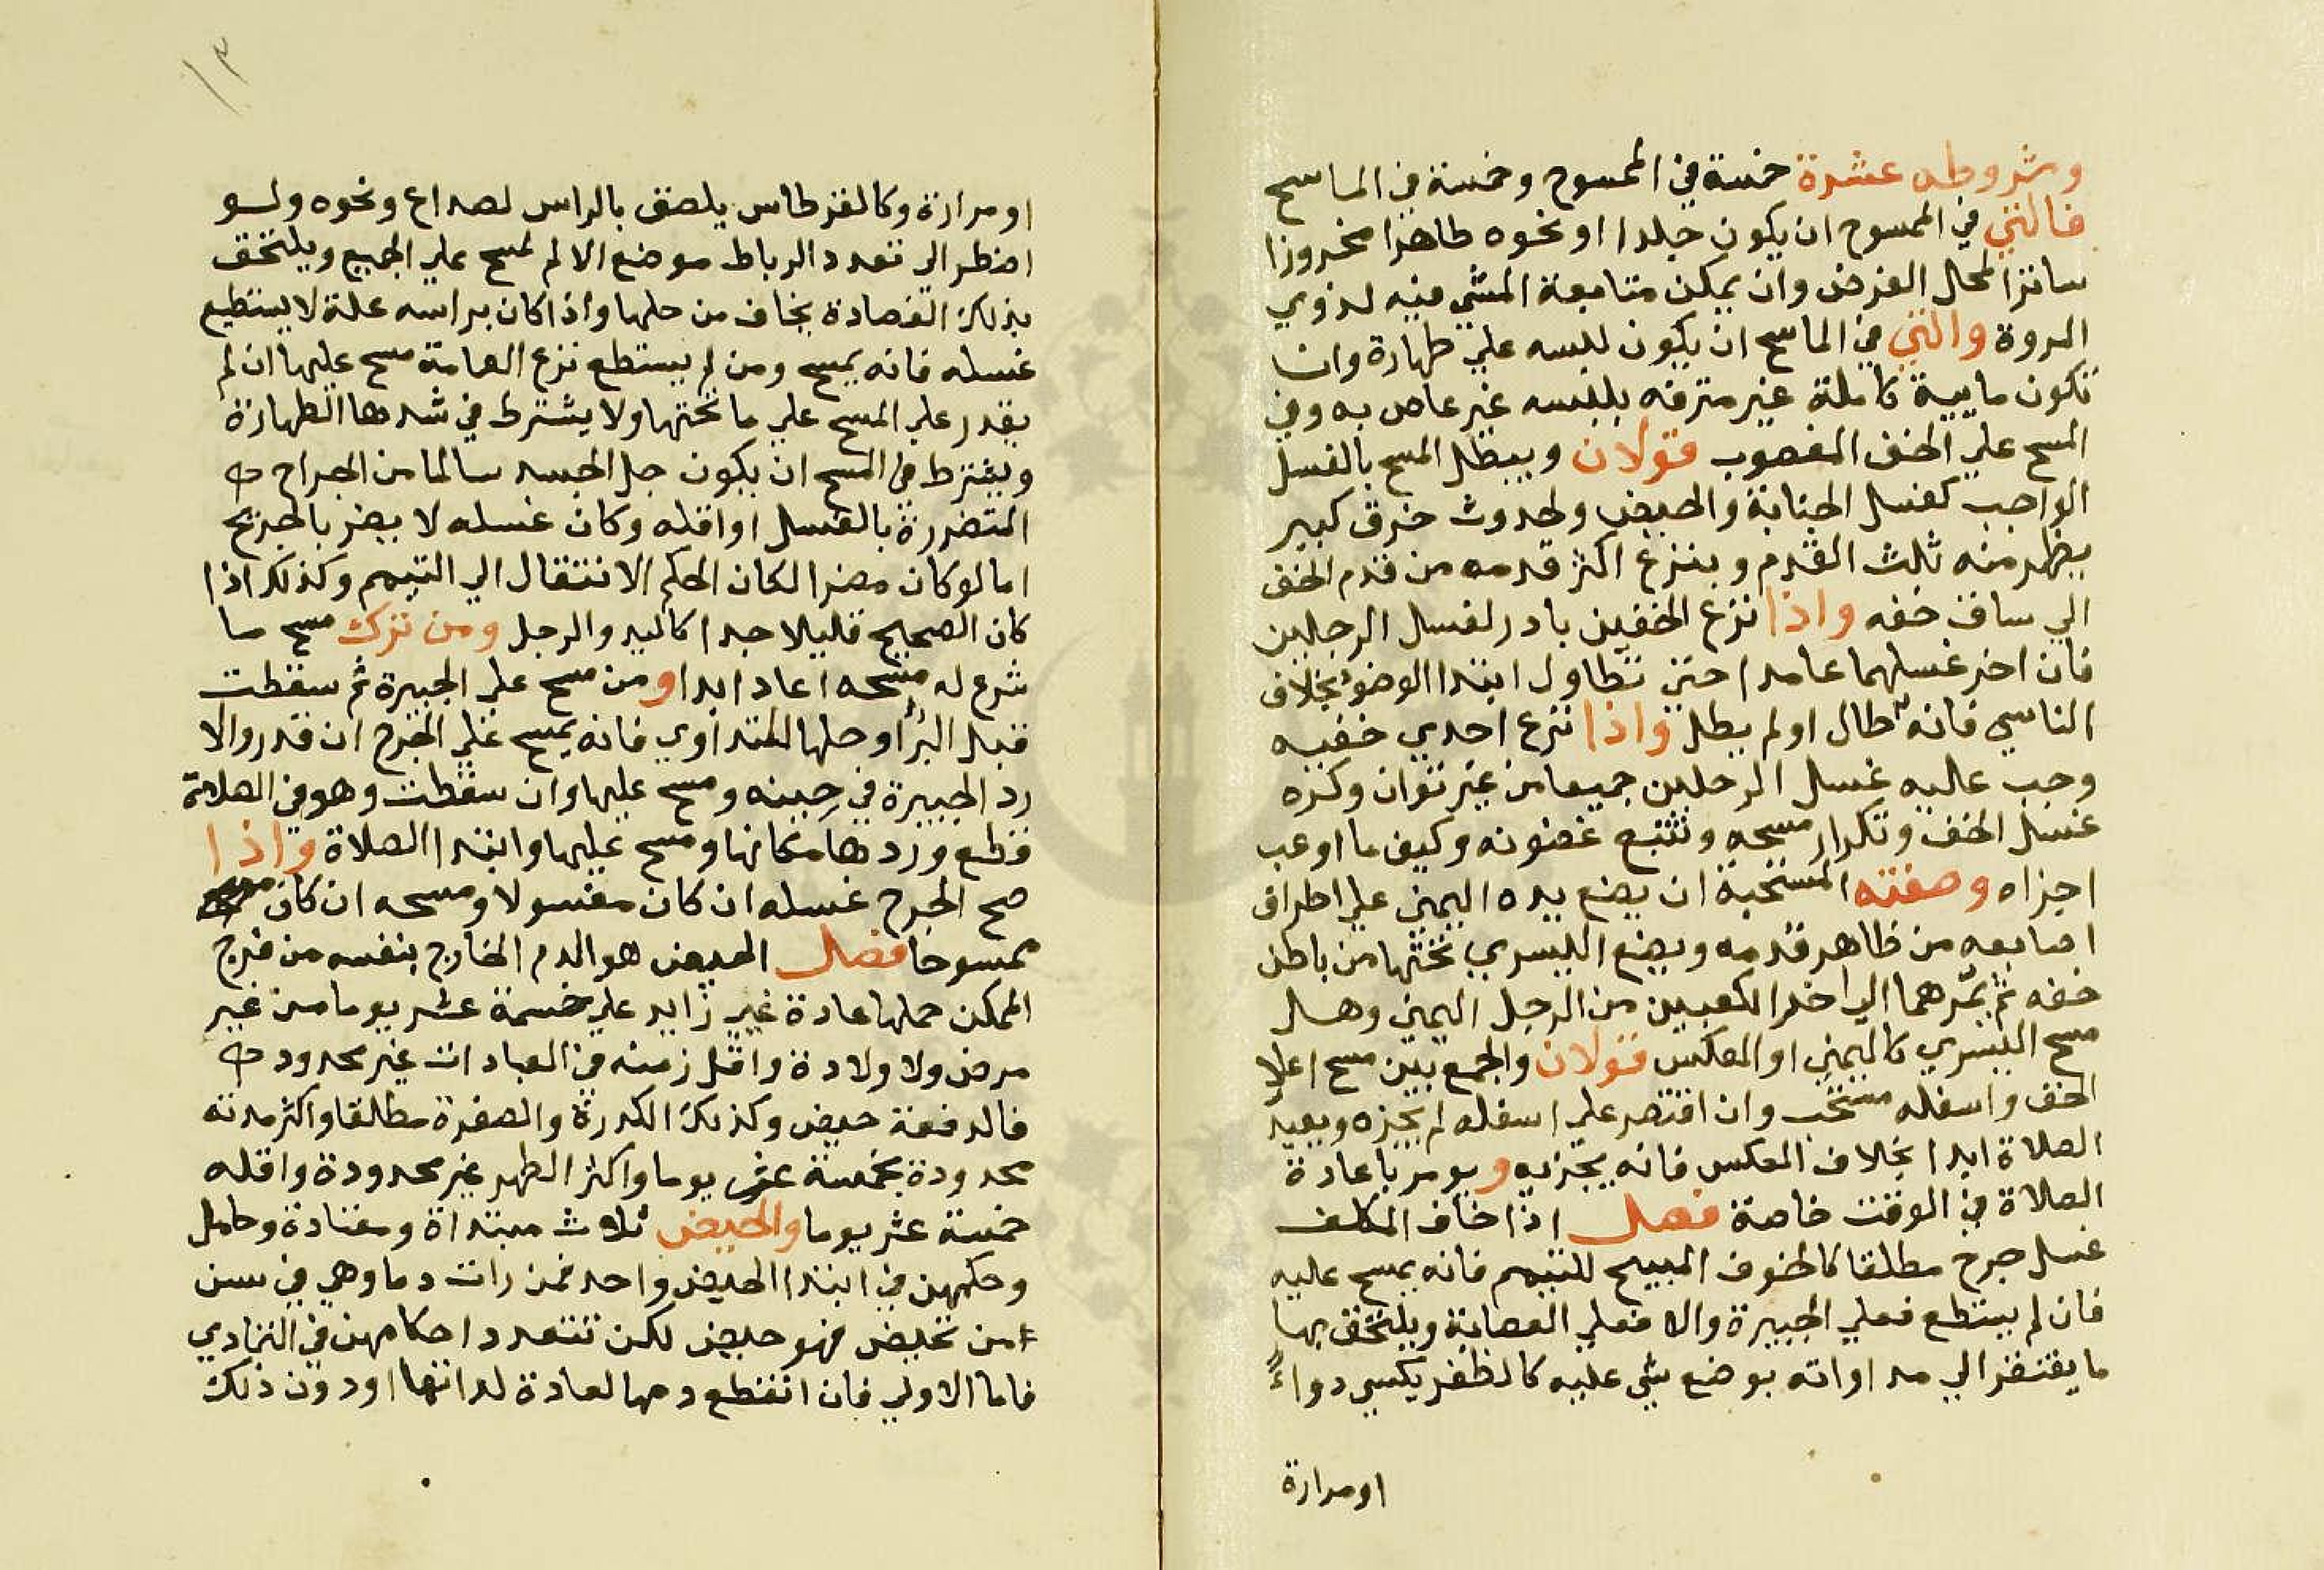 وشروطه عشرة خمسة في الممسوح وخمسة في الماسح
فالتي في الممسوح ان يكون جلدا او نحوه طاهرا مخروزا
ساترا لمحل الفرض وان يمكن متابعة المشي فيه لذوي
المروة والتي في الماسح ان يكون لبسه علي طهارة وان
تكون مايية كاملة غير مترفه بلبسه غير عاص به وفي
المسح علي الخف المغصوب قولان ويبطل المسح بالغسل
الواجب كغسل الجنابة والحيض ولحدوث خرق كبير
يظهر منه ثلث القدم وبنزع اكثر قدمه من قدم الخف
الي ساق خفه واذا نزع الخفين بادر لغسل الرجلين
فان اخر غسلهما عامدا حتي تطاول ابتدا الوضوء بخلاف
الناسي فانه طال او لم يطل واذا نزع احدي خفيه
وجب عليه غسل الرجلين جميعا من غير توان وكره
غسل الخف وتكرار مسحه وتتبع غضونه وكيف ما اوعب
اجزاه وصفته المستحبة ان يضع يده اليمني علي اطراف
اصابعه من ظاهر قدمه ويضع اليسري تحتها من باطن
خفه ثم يمرهما الي اخر الكعبين من الرجل اليمني وهل
مسح اليسري كاليمني او العكس قولان والجمع بين مسح اعلا
الخف واسفله مستحب وان اقتصر علي اسفله لم يجزه ويعيد
الصلاة ابدا بخلاف العكس فانه يجزيه ويومر باعادة
الصلاة في الوقت خاصة فصل اذا خاف المكلف
غسل جرح مطلقا كالخوف المبيح للتيمم فانه يمسح عليه
فان لم يستطع فعلي الجبيرة والا فعلي العصابة ويلتحق بها
ما يفتقر الي مداواته بوضع شي عليه كالظفر يكسي دواءً
او مرارة
او مرارة وكالقرطاس يلصق بالراس لصداع ونحوه ولو
اضطر الي تعدد الرباط موضع الالم لمسح علي الجميع ويلتحق
بذلك الفصادة يخاف من حلها واذا كان براسه علة لا يستطيع
غسله فانه يمسح ومن لم يستطع نزع العمامة مسح عليها ان لم
يقدر علي المسح علي ما تحتها ولا يشترط في شدها الطهارة
ويشترط في المسح ان يكون جل الجسد سالما من الجراح
المتضررة بالغسل او اقله وكان غسله لا يضر بالجريح
اما لو كان مضرا لكان الحكم الانتقال الي التيمم وكذلك اذا
كان الصحيح قليلا جدا كاليد والرجل ومن ترك مسح ما
شرع له مسحه اعاد ابدا ومن مسح علي الجبيرة ثم سقطت
قبل البرا او حلها للتداوي فانه يمسح علي الجرح ان قدر والا
رد الجبيرة في حينه ومسح عليها وان سقطت وهو في الصلاة
قطع وردها مكانها ومسح عليها وابتدا الصلاة واذا
صح الجرح غسله ان كان مغسولا ومسحه ان كان
ممسوحا فصل الحيض هو الدم الخارج بنفسه من فرج
الممكن حملها عادة غير زايد علي خمسة عشر يوما من غير
مرض ولا ولادة واقل زمنه في العبادات غير محدود
فالدفعة حيض وكذلك الكدرة والصفرة مطلقا واكثر مدته
محدودة بخمسة عشر يوما واكثر الطهر غير محدودة واقله
خمسة عشر يوما والحيض ثلاث مبتداة ومعتادة وحامل
وحكمهن في ابتدا الحيض واحد فمن رات دما وهي في سن
من تحيض فهو حيض لكن تتعدد احكامهن في التمادي
فاما الاولي فان انقطع دمها لعادة لداتها او دون ذلك
١٣